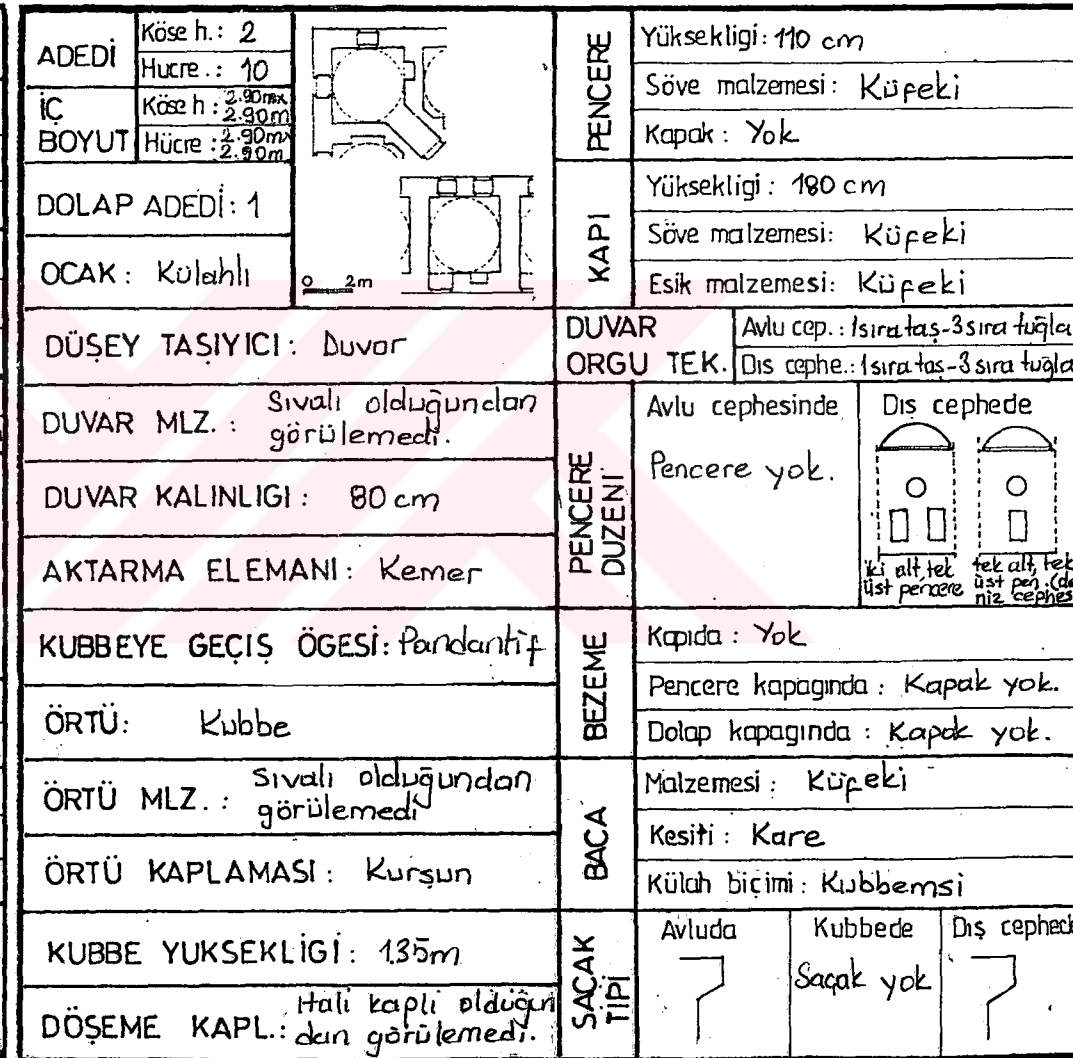 ADEDİ
Köse h.: 2
Hucre.: 10
İÇ BOYUT
Köse h: 2.90mx 2.90m
Hücre: 2.90mx 2.90m
DOLAP ADEDİ: 1
OCAK: Külahlı
0 2m
DÜŞEY TAŞIYICI: Duvar
DUVAR MLZ.: Sıvalı olduğundan
görülemedi.
DUVAR KALINLIGI: 80 cm
AKTARMA ELEMANI: Kemer
KUBBEYE GEÇİŞ ÖGESİ: Pandantif
ÖRTÜ: Kubbe
ÖRTÜ MLZ.: Sıvalı olduğundan
görülemedi
ÖRTÜ KAPLAMASI: Kurşun
KUBBE YUKSEKLİGİ: 135m
DÖŞEME KAPL.: Hali kapli olduğun
dan görülemedi.
PENCERE
Yüksekligi: 110 cm
Söve malzemesi: Küfeki
Kapak: Yok
KAPI
Yüksekligi: 180 cm
Söve malzemesi: Küfeki
Esik malzemesi: Küfeki
DUVAR
ORGU TEK.
Avlu cep.: 1sıra taş-3sıra tuğla
Dıs cephe.: 1sıra taş-3sıra tuğla
PENCERE
DUZENİ
Avlu cephesinde
Pencere yok.
Dıs cephede
iki alt, tek
üst pencere
tek alt, tek
üst pen. (de
niz cephes
BEZEME
Kapıda: Yok
Pencere kapagında: Kapak yok.
Dolap kapagında: Kapak yok.
BACA
Malzemesi: Küfeki
Kesiti: Kare
Külah biçimi: Kubbemsi
SAÇAK
TİPİ
Avluda
Kubbede
Saçak yok
Dış cephede